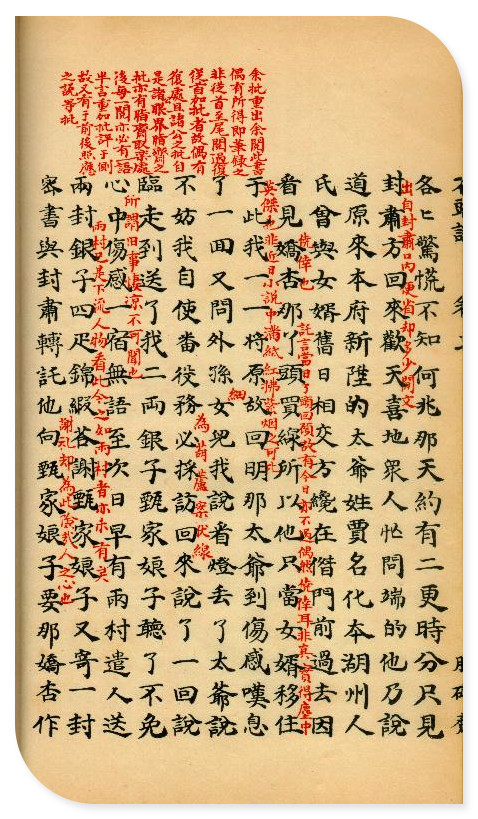 余批重出余閱此書
偶有所得即筆錄之
非從首至尾閱過復
從首加批者故偶有
復處且諸公之批自
是諸公眼界脂齋之
批亦有脂齋取樂處
後每一閱亦必有一語
半言重加批評于側
故又有于前後照應
之說等批
各〻驚慌不知何兆那天約有二更時分只見
出自封肅口內更省却多少閒文
封肅方回來歡天喜地眾人忙問端的他乃說
道原來本府新陞的太爺姓賈名化本湖州人
氏曾與女婿舊日相交方纔在偺門前過去因
僥倖也
託言當日丫頭回顧故有今日亦不過偶然僥倖耳非真實得塵中
看見嬌杏那丫頭買線所以他只當女婿移住
英傑也非近日小說中滿紙紅拂紫烟之可比
于此我一一將原故回明那太爺到傷感嘆息
細
了一回又問外孫女兒我說看燈去了太爺說
為葫蘆案伏線
不妨我自使番役務必採訪回來說了一回說
臨走到送了我二兩銀子甄家娘子聽了不免
所謂舊事凄凉不可聞也
心中傷感一宿無語至次日早有雨村遣人送
雨村已是下流人物看此今之如雨村者亦未有矣
兩封銀子四疋錦緞答謝甄家娘子又寄一封
謝礼却為此險哉人之心也
密書與封肅轉託他向甄家娘子要那嬌杏作